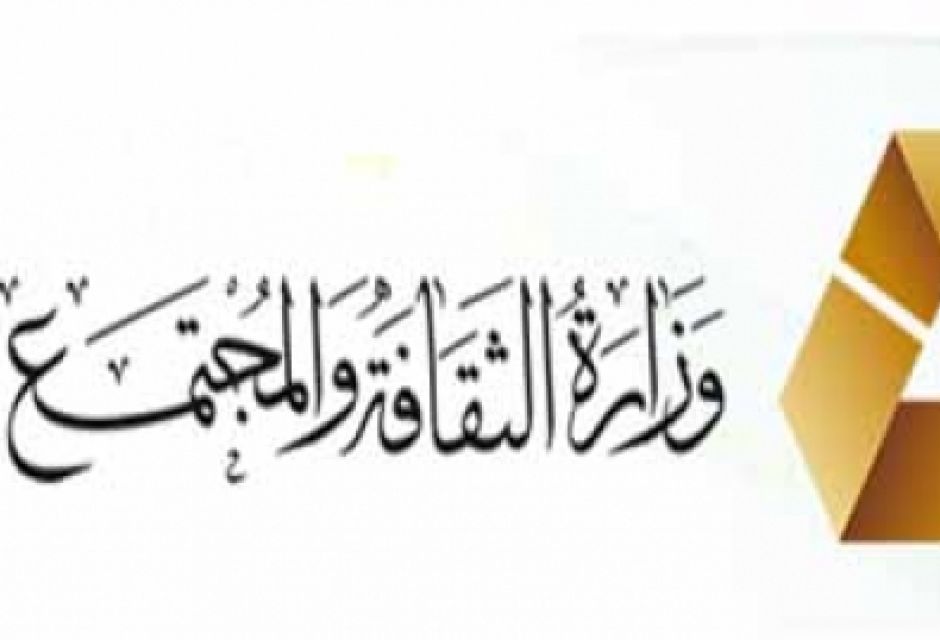 وزارة الثقافة والمجتمع